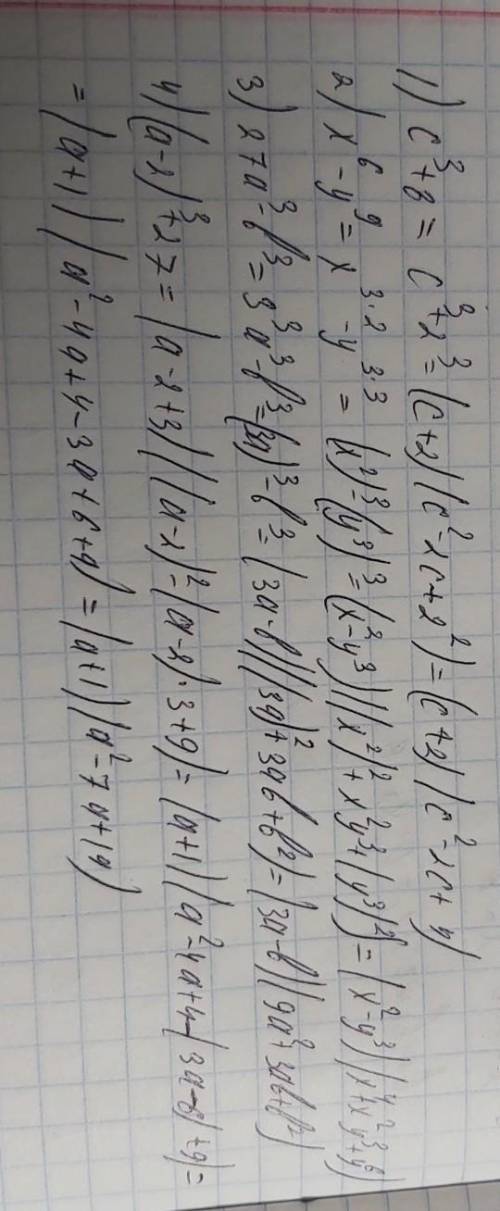 1) c³+8 = c³+2³=(c+2)(c²-2c+2²)=(c+2)(c²-2c+4)
2) x⁶-y⁹=x³·²-y³·³=(x²)³-(y³)³=(x²-y³)((x²)²+x²y³+(y³)²)=(x²-y³)(x⁴+x²y³+y⁶)
3) 27a³-b³=3³a³-b³=(3a)³-b³=(3a-b)((3a)²+3ab+b²)=(3a-b)(9a²+3ab+b²)
4) (a-2)³+27=(a-2+3)((a-2)²-(a-2)·3+9)=(a+1)(a²-4a+4-(3a-6)+9)=
=(a+1)(a²-4a+4-3a+6+9)=(a+1)(a²-7a+19)